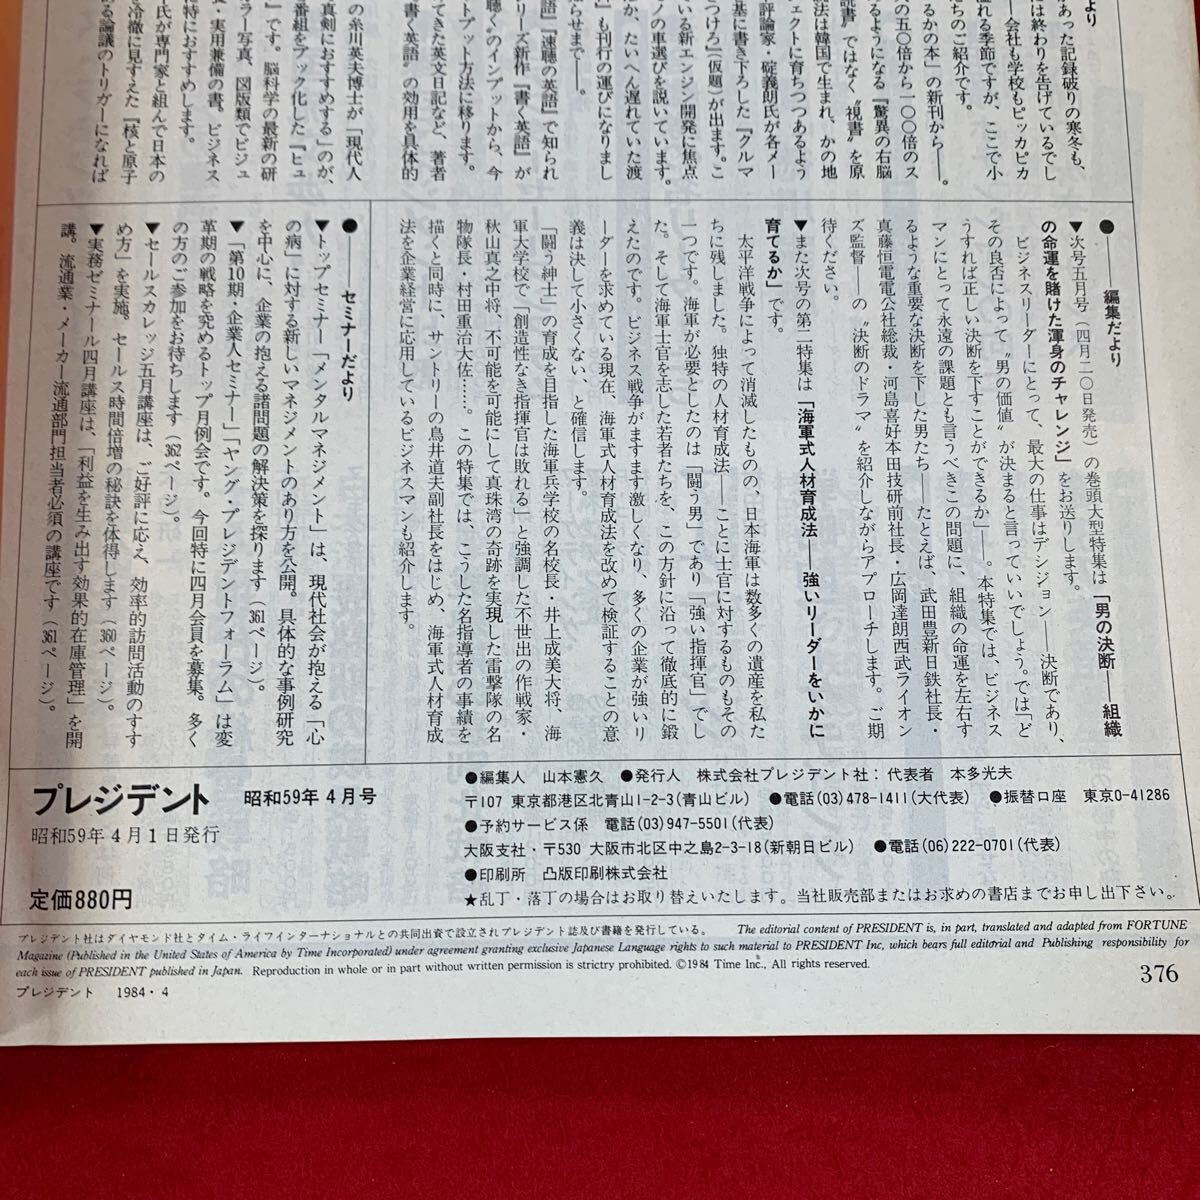 より
があった記録破りの寒冬も、
には終わりを告げているでし
──会社も学校もピッカピカ
溢れる季節ですが、ここで小
たちのご紹介です。
るかの本」の新刊から──。
の五〇倍から一〇〇倍のス
るようになる『驚異の右脳
読書〟ではなく〝視書〟を原
法は韓国で生まれ、かの地
ェクトに育ちつつあるよう
評論家・碇義朗氏が各メー
基に書き下ろした『クルマ
さつけろ』(仮題)が出ます。こ
ている新エンジン開発に焦点
ンの車選びを説いています。
ほか、たいへん遅れていた渡
』も刊行の運びになりまし
知らせまで──。
英語』『速聴の英語』で知られ
リーズ新作『書く英語』が
聴〟のインプットから、今
トプット方法に移ります。
てきた英文日記など、著者
書く英語〟の効用を具体的
の糸川英夫博士が「現代人
真剣におすすめする」のが、
番組をブック化した『ヒュ
』です。脳科学の最新の研
ラー写真、図版類でビジュ
・実用兼備の書。ビジネス
特におすすめします。
氏が専門家と組んで日本の
冷徹に見すえた『核と原子
る論議のトリガーになれば
●──編集だより
▼次号五月号(四月二〇日発売)の巻頭大型特集は「男の決断──組織
の命運を賭けた渾身のチャレンジ」をお送りします。
ビジネスリーダーにとって、最大の仕事はデシジョン──決断であり、
その良否によって〝男の価値〟が決まると言っていいでしょう。では「ど
うすれば正しい決断を下すことができるか」──。本特集では、ビジネス
マンにとって永遠の課題とも言うべきこの問題に、組織の命運を左右す
るような重要な決断を下した男たち──たとえば、武田豊新日鉄社長・
真藤恒電電公社総裁・河島喜好本田技研前社長・広岡達朗西武ライオン
ズ監督──の〝決断のドラマ〟を紹介しながらアプローチします。ご期
待ください。
▼また次号の第二特集は「海軍式人材育成法──強いリーダーをいかに
育てるか」です。
太平洋戦争によって消滅したものの、日本海軍は数多くの遺産を私た
ちに残しました。独特の人材育成法──ことに士官に対するものもその
一つです。海軍が必要としたのは「闘う男」であり「強い指揮官」でし
た。そして海軍士官を志した若者たちを、この方針に沿って徹底的に鍛
えたのです。ビジネス戦争がますます激しくなり、多くの企業が強いリ
ーダーを求めている現在、海軍式人材育成法を改めて検証することの意
義は決して小さくない、と確信します。
「闘う紳士」の育成を目指した海軍兵学校の名校長・井上成美大将、海
軍大学校で「創造性なき指揮官は敗れる」と強調した不世出の作戦家・
秋山真之中将、不可能を可能にして真珠湾の奇跡を実現した雷撃隊の名
物隊長・村田重治大佐……。この特集では、こうした名指導者の事績を
描くと同時に、サントリーの鳥井道夫副社長をはじめ、海軍式人材育成
法を企業経営に応用しているビジネスマンも紹介します。
●──セミナーだより
▼トップセミナー「メンタルマネジメント」は、現代社会が抱える「心
の病」に対する新しいマネジメントのあり方を公開。具体的な事例研究
を中心に、企業の抱える諸問題の解決策を探ります(361ページ)。
▼「第10期・企業人セミナー」「ヤング・プレジデントフォーラム」は変
革期の戦略を究めるトップ月例会です。今回特に四月会員を募集。多く
の方のご参加をお待ちします(362ページ)。
▼セールスカレッジ五月講座は、ご好評に応え、効率的訪問活動のすす
め方」を実施。セールス時間倍増の秘訣を体得します(360ページ)。
▼実務ゼミナール四月講座は、「利益を生み出す効果的在庫管理」を開
講。流通業・メーカー流通部門担当者必須の講座です(361ページ)。
プレジデント 昭和59年4月号
昭和59年4月1日発行
定価880円
●編集人 山本憲久 ●発行人 株式会社プレジデント社：代表者 本多光夫
〒107 東京都港区北青山1-2-3(青山ビル) ●電話(03)478-1411(大代表) ●振替口座 東京0-41286
●予約サービス係 電話(03)947-5501(代表)
大阪支社・〒530 大阪市北区中之島2-3-18(新朝日ビル) ●電話(06)222-0701(代表)
●印刷所 凸版印刷株式会社
★乱丁・落丁の場合はお取り替えいたします。当社販売部またはお求めの書店までお申し出下さい。
プレジデント社はダイヤモンド社とタイム・ライフインターナショナルとの共同出資で設立されプレジデント誌及び書籍を発行している。 The editorial content of PRESIDENT is, in part, translated and adapted from FORTUNE
Magazine (Published in the United States of America by Time Incorporated) under agreement granting exclusive Japanese Language rights to such material to PRESIDENT Inc, which bears full editorial and Publishing responsibility for
each issue of PRESIDENT published in Japan. Reproduction in whole or in part without written permission is strictry prohibited. ©1984 Time Inc., All rights reserved.
プレジデント 1984・4
376